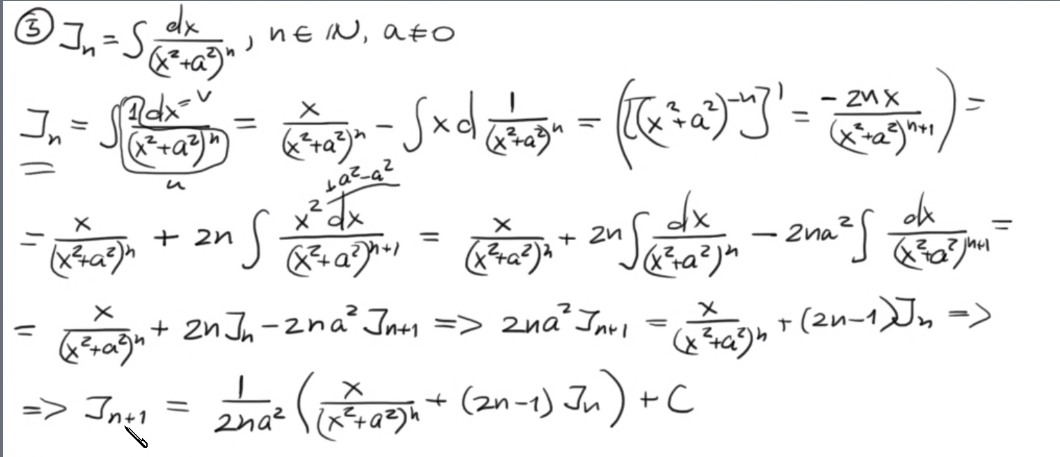 ③ Jₙ = ∫ dx/(x²+a²)ⁿ, n ∈ ℕ, a ≠ 0
Jₙ = ∫ 1 dx = v/(x²+a²)ⁿ u = x/(x²+a²)ⁿ − ∫ x d 1/(x²+a²)ⁿ = ([(x²+a²)⁻ⁿ]' = −2nx/(x²+a²)ⁿ⁺¹) =
= x/(x²+a²)ⁿ + 2n ∫ x² +a²−a² dx/(x²+a²)ⁿ⁺¹ = x/(x²+a²)ⁿ + 2n ∫ dx/(x²+a²)ⁿ − 2na² ∫ dx/(x²+a²)ⁿ⁺¹ =
= x/(x²+a²)ⁿ + 2n Jₙ − 2na² Jₙ₊₁ => 2na² Jₙ₊₁ = x/(x²+a²)ⁿ + (2n−1) Jₙ =>
=> Jₙ₊₁ = 1/2na² (x/(x²+a²)ⁿ + (2n−1) Jₙ) + C